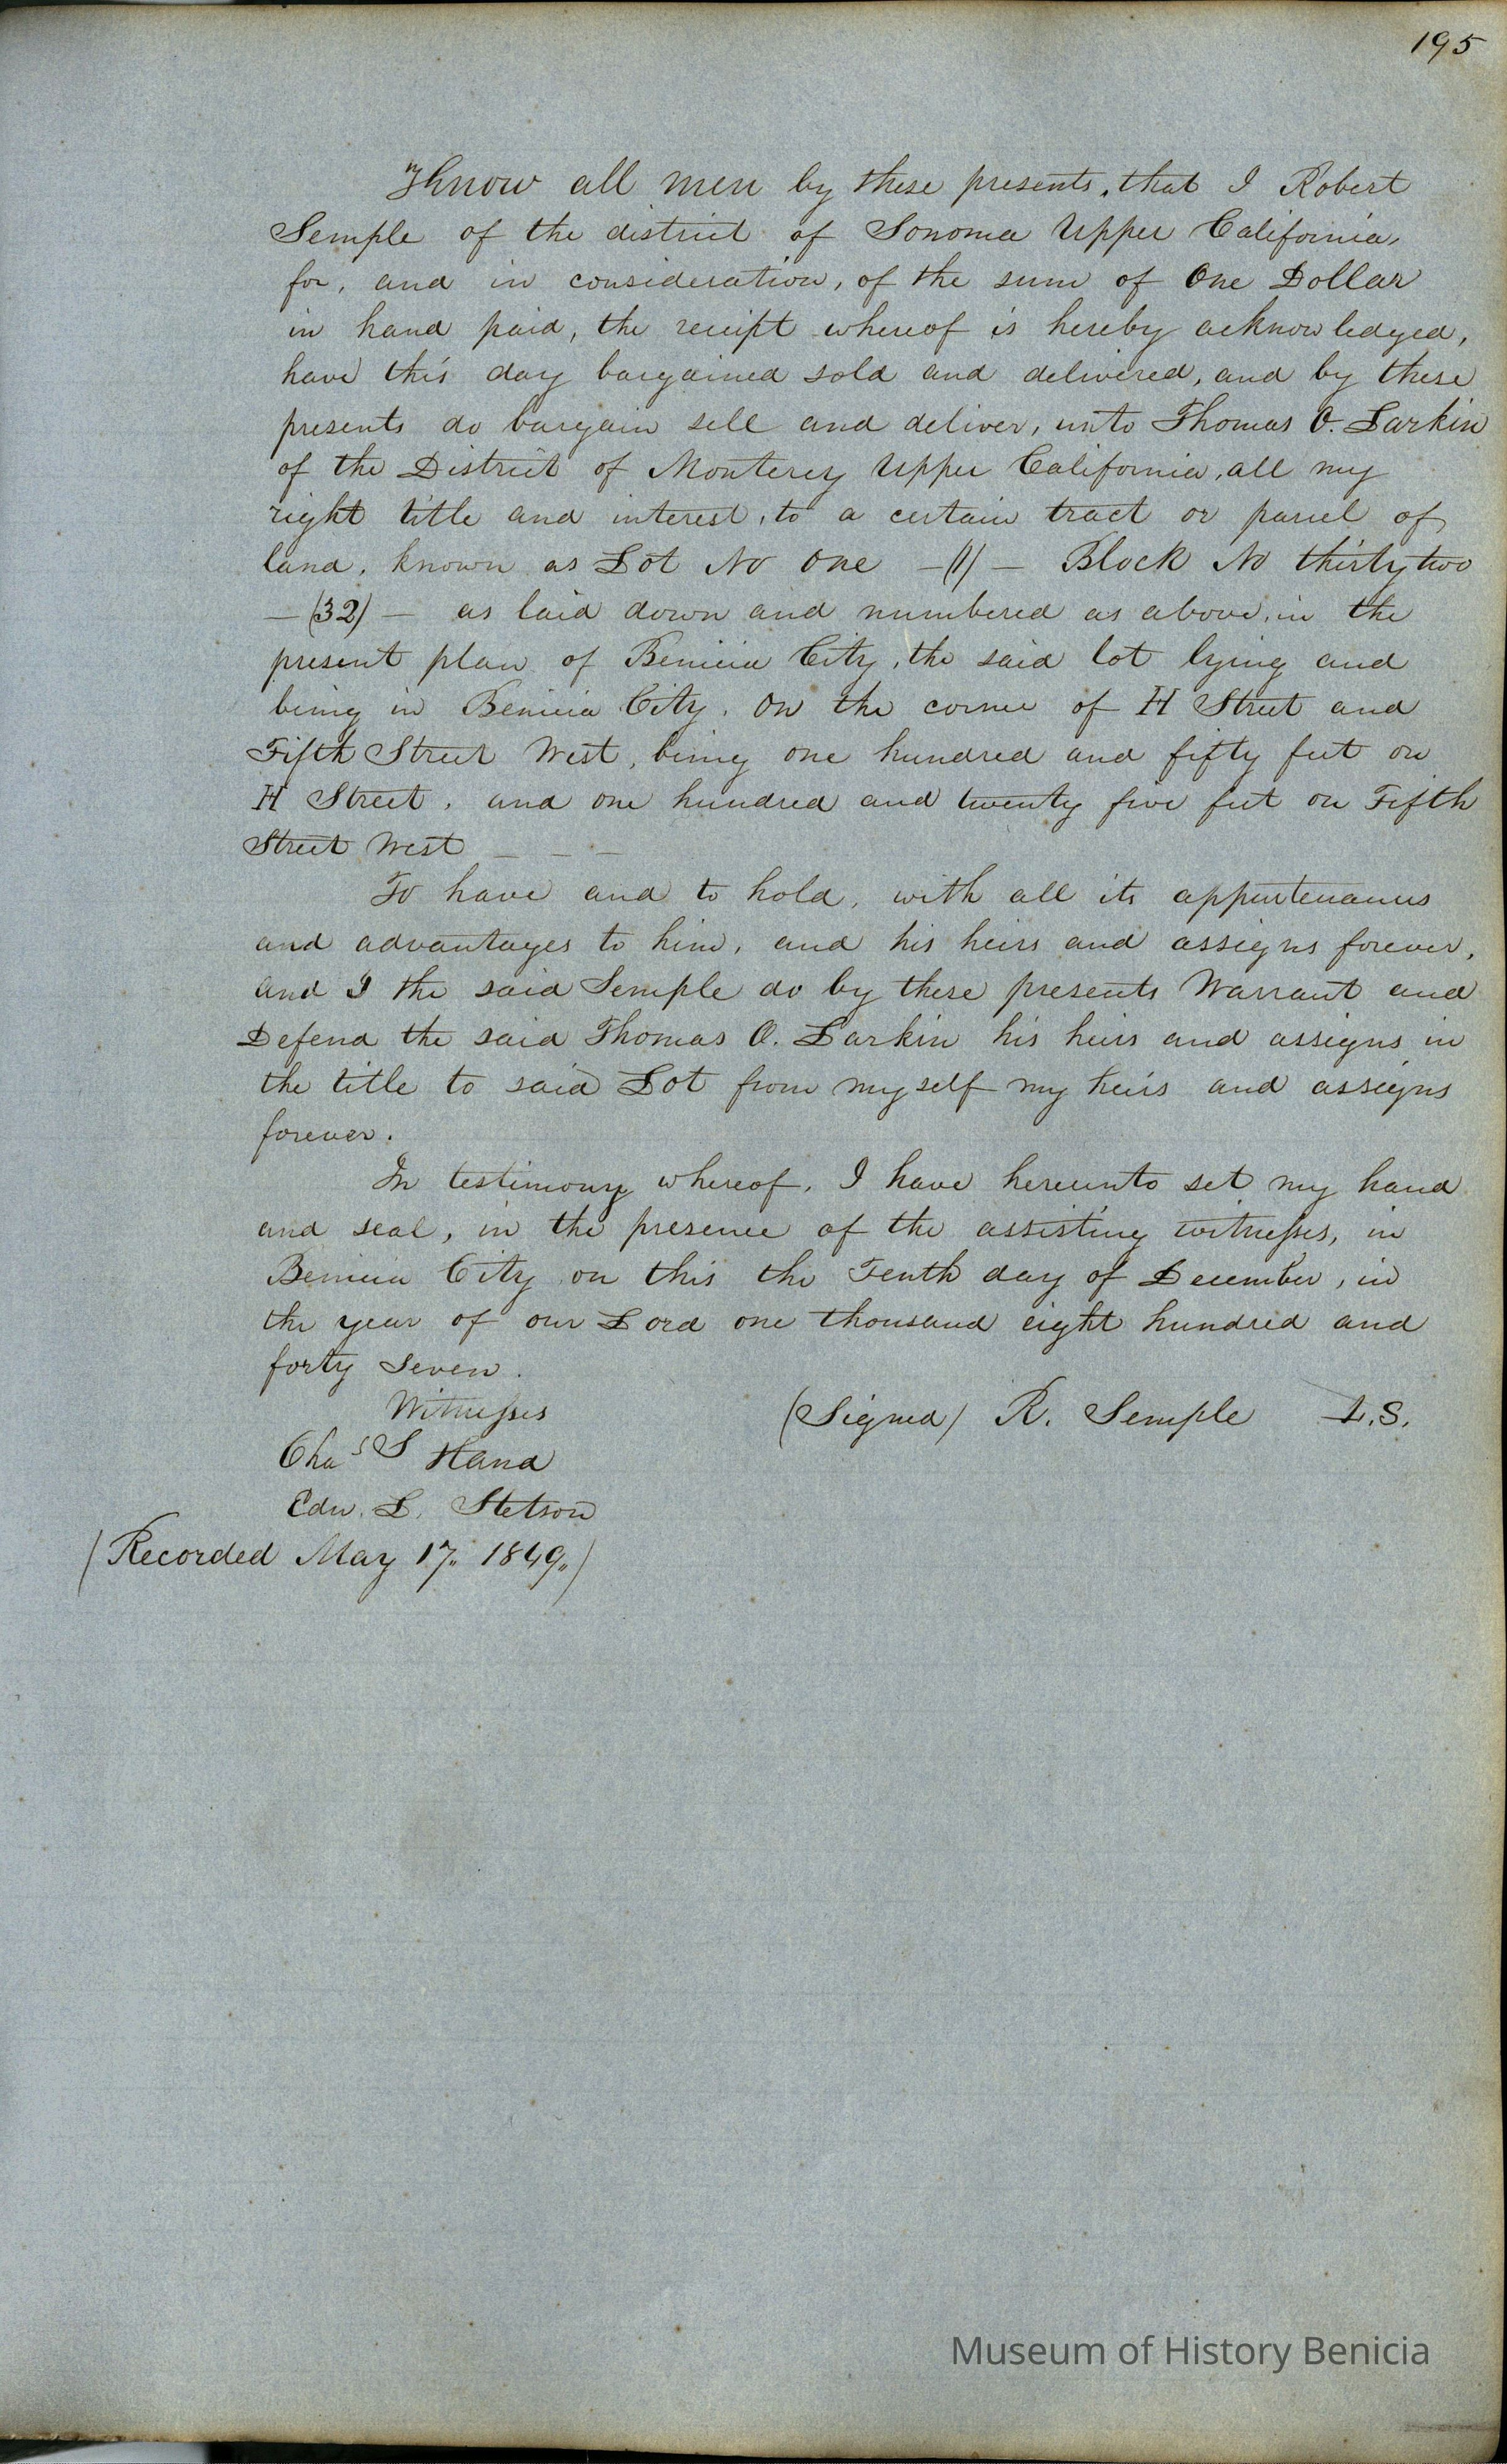 195
Know all men by these presents, that I Robert
Semple of the district of Sonoma Upper California,
for, and in consideration, of the sum of One Dollar
in hand paid, the receipt whereof is hereby acknowledged,
have this day bargained sold and delivered, and by these
presents do bargain sell and deliver, unto Thomas O. Larkin
of the District of Monterey Upper California, all my
right title and interest, to a certain tract or parcel of
land, known as Lot No One -(1)- Block No thirty two
-(32)- as laid down and numbered as above, in the
present plan of Benicia City, the said lot lying and
being in Benicia City, On the corner of H Street and
Fifth Street West, being one hundred and fifty feet on
H Street, and one hundred and twenty five feet on Fifth
Street West - - -
To have and to hold, with all its appurtenances
and advantages to him, and his heirs and assigns forever,
and I the said Semple do by these presents Warrant and
Defend the said Thomas O. Larkin his heirs and assigns in
the title to said Lot from myself my heirs and assigns
forever.
In testimony whereof, I have hereunto set my hand
and seal, in the presence of the assisting witnesses, in
Benicia City on this the Tenth day of December, in
the year of our Lord one thousand eight hundred and
forty Seven.
Witnesses (Signed) R. Semple L.S.
Chas S Hand
Edw. L. Stetson
(Recorded May 17. 1849.)
Museum of History Benicia